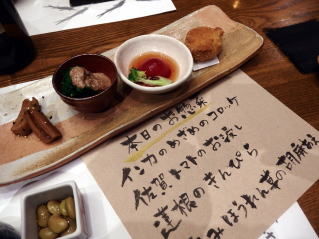 本日のお惣菜
イカのめあめのコロッケ
佐賀トマトのお浸し
蓮根のきんぴら
ほうれん草の胡麻